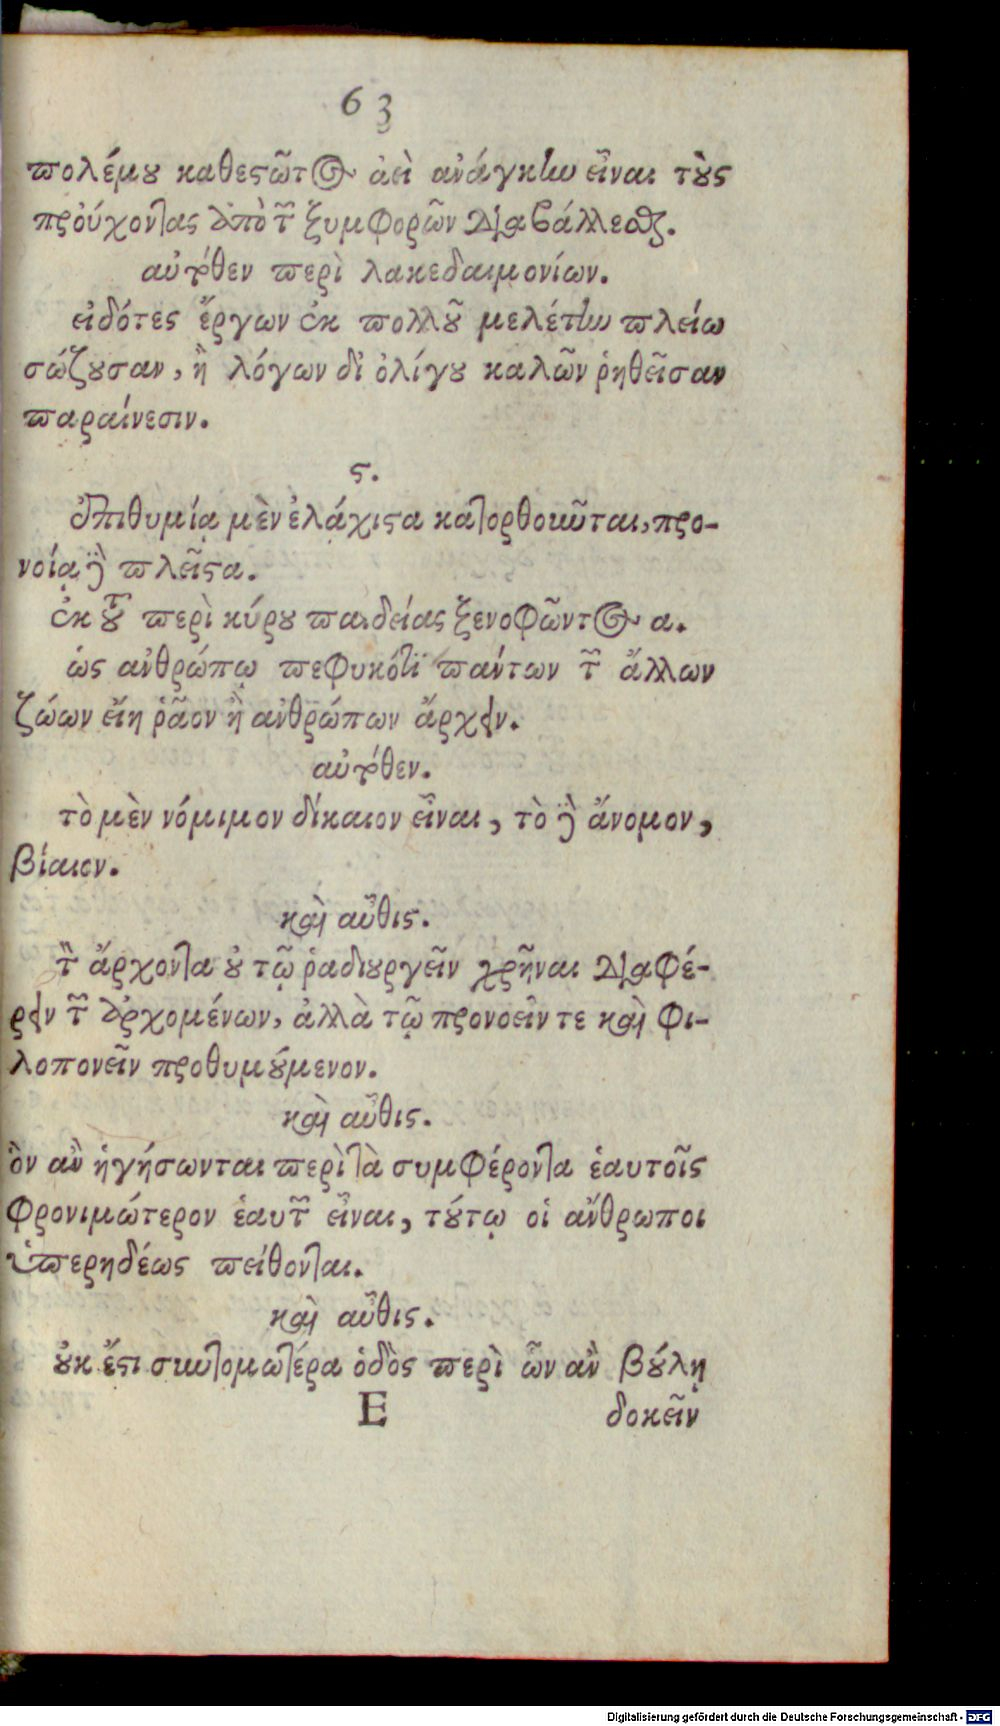 63
πολέμου καθεστῶτος ἀεὶ ἀνάγκην εἶναι τοὺς
προύχοντας ἀπὸ τῶν ξυμφορῶν διαβάλλεσθαι.
αὐτόθεν περὶ λακεδαιμονίων.
εἰδότες ἔργων ἐκ πολλοῦ μελέτην πλείω
σώζουσαν, ἢ λόγων δι᾽ ὀλίγου καλῶν ῥηθεῖσαν
παραίνεσιν.
ς.
ἐπιθυμίᾳ μὲν ἐλάχιστα κατορθοῦται, προ-
νοίᾳ δὲ πλεῖστα.
ἐκ τοῦ περὶ κύρου παιδείας ξενοφῶντος α.
ὡς ἀνθρώπῳ πεφυκότι πάντων τῶν ἄλλων
ζώων εἴη ῥᾶον ἢ ἀνθρώπων ἄρχειν.
αὐτόθεν.
τὸ μὲν νόμιμον δίκαιον εἶναι, τὸ δὲ ἄνομον,
βίαιον.
καὶ αὖθις.
τὸν ἄρχοντα οὐ τῷ ῥαδιουργεῖν χρῆναι διαφέ-
ρειν τῶν ἀρχομένων, ἀλλὰ τῷ προνοεῖν τε καὶ φι-
λοπονεῖν προθυμούμενον.
καὶ αὖθις.
ὃν ἂν ἡγήσωνται περὶ τὰ συμφέροντα ἑαυτοῖς
φρονιμώτερον ἑαυτῶν εἶναι, τούτῳ οἱ ἄνθρωποι
ὑπερηδέως πείθονται.
καὶ αὖθις.
οὐκ ἔστι συντομωτέρα ὁδὸς περὶ ὧν ἂν βούλῃ
E δοκεῖν
Digitalisierung gefördert durch die Deutsche Forschungsgemeinschaft - DFG